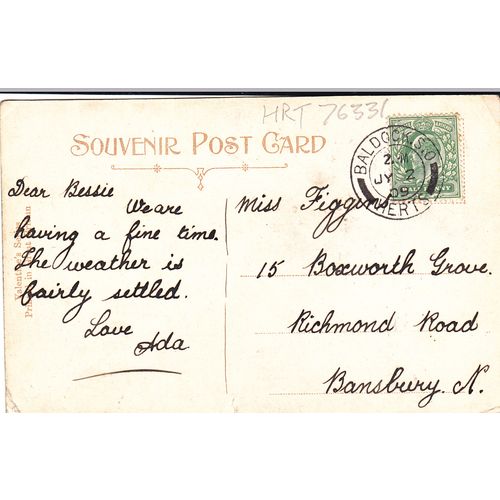 HRT 76331
SOUVENIR POST CARD
BALDOCK S.O
JY 2
09
HERTS
Dear Bessie
We are
having a fine time.
The weather is
fairly settled.
Love
Ada
Miss Figgins
15 Boxworth Grove.
Richmond Road
Bansbury. N.
Valentine's
Printed in